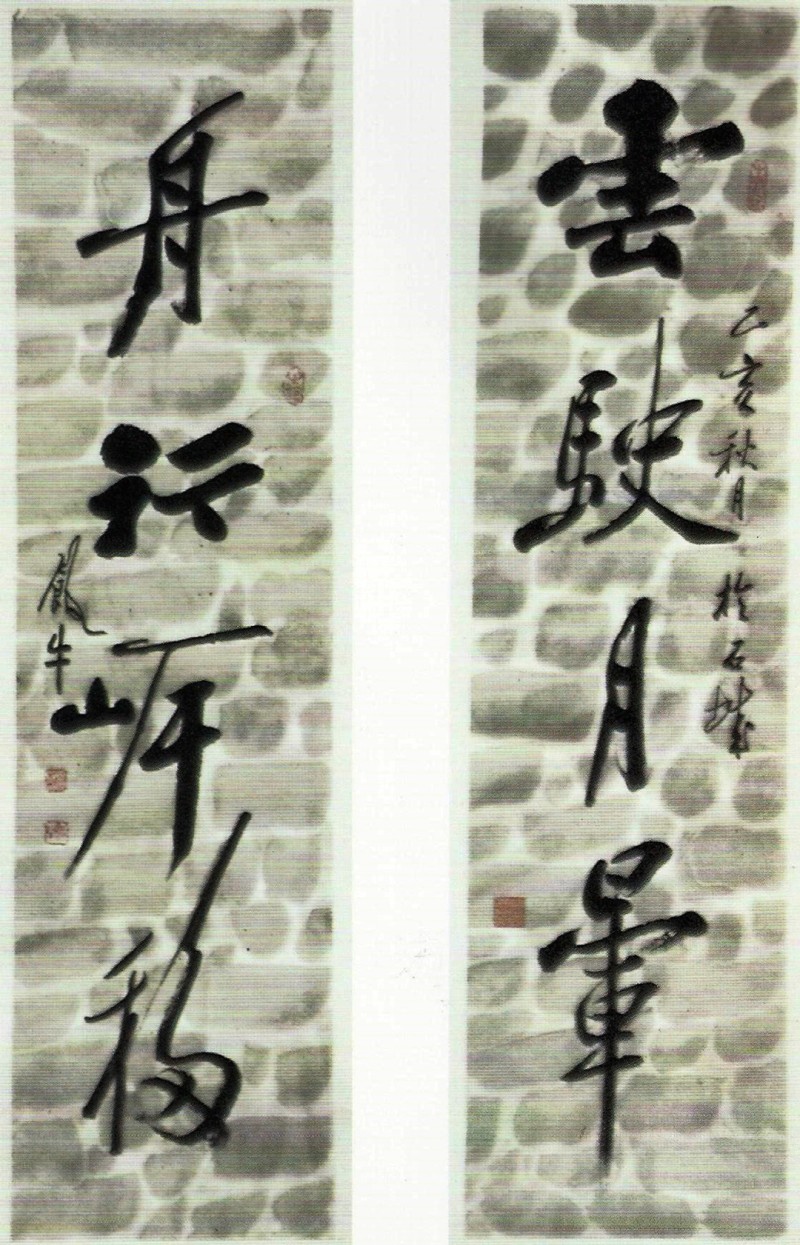 雲駛月暈
己亥秋月於石城
舟行岸移
牛